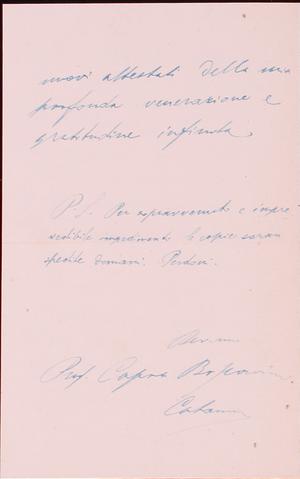 nuovi attestati della mia
profonda venerazione e
gratitudine infinita.
P. S. Per sopravvenuto e impre
vedibile le copie saran
spedite domani. Perdoni.
Dev.mo
Prof. Capra
Catania